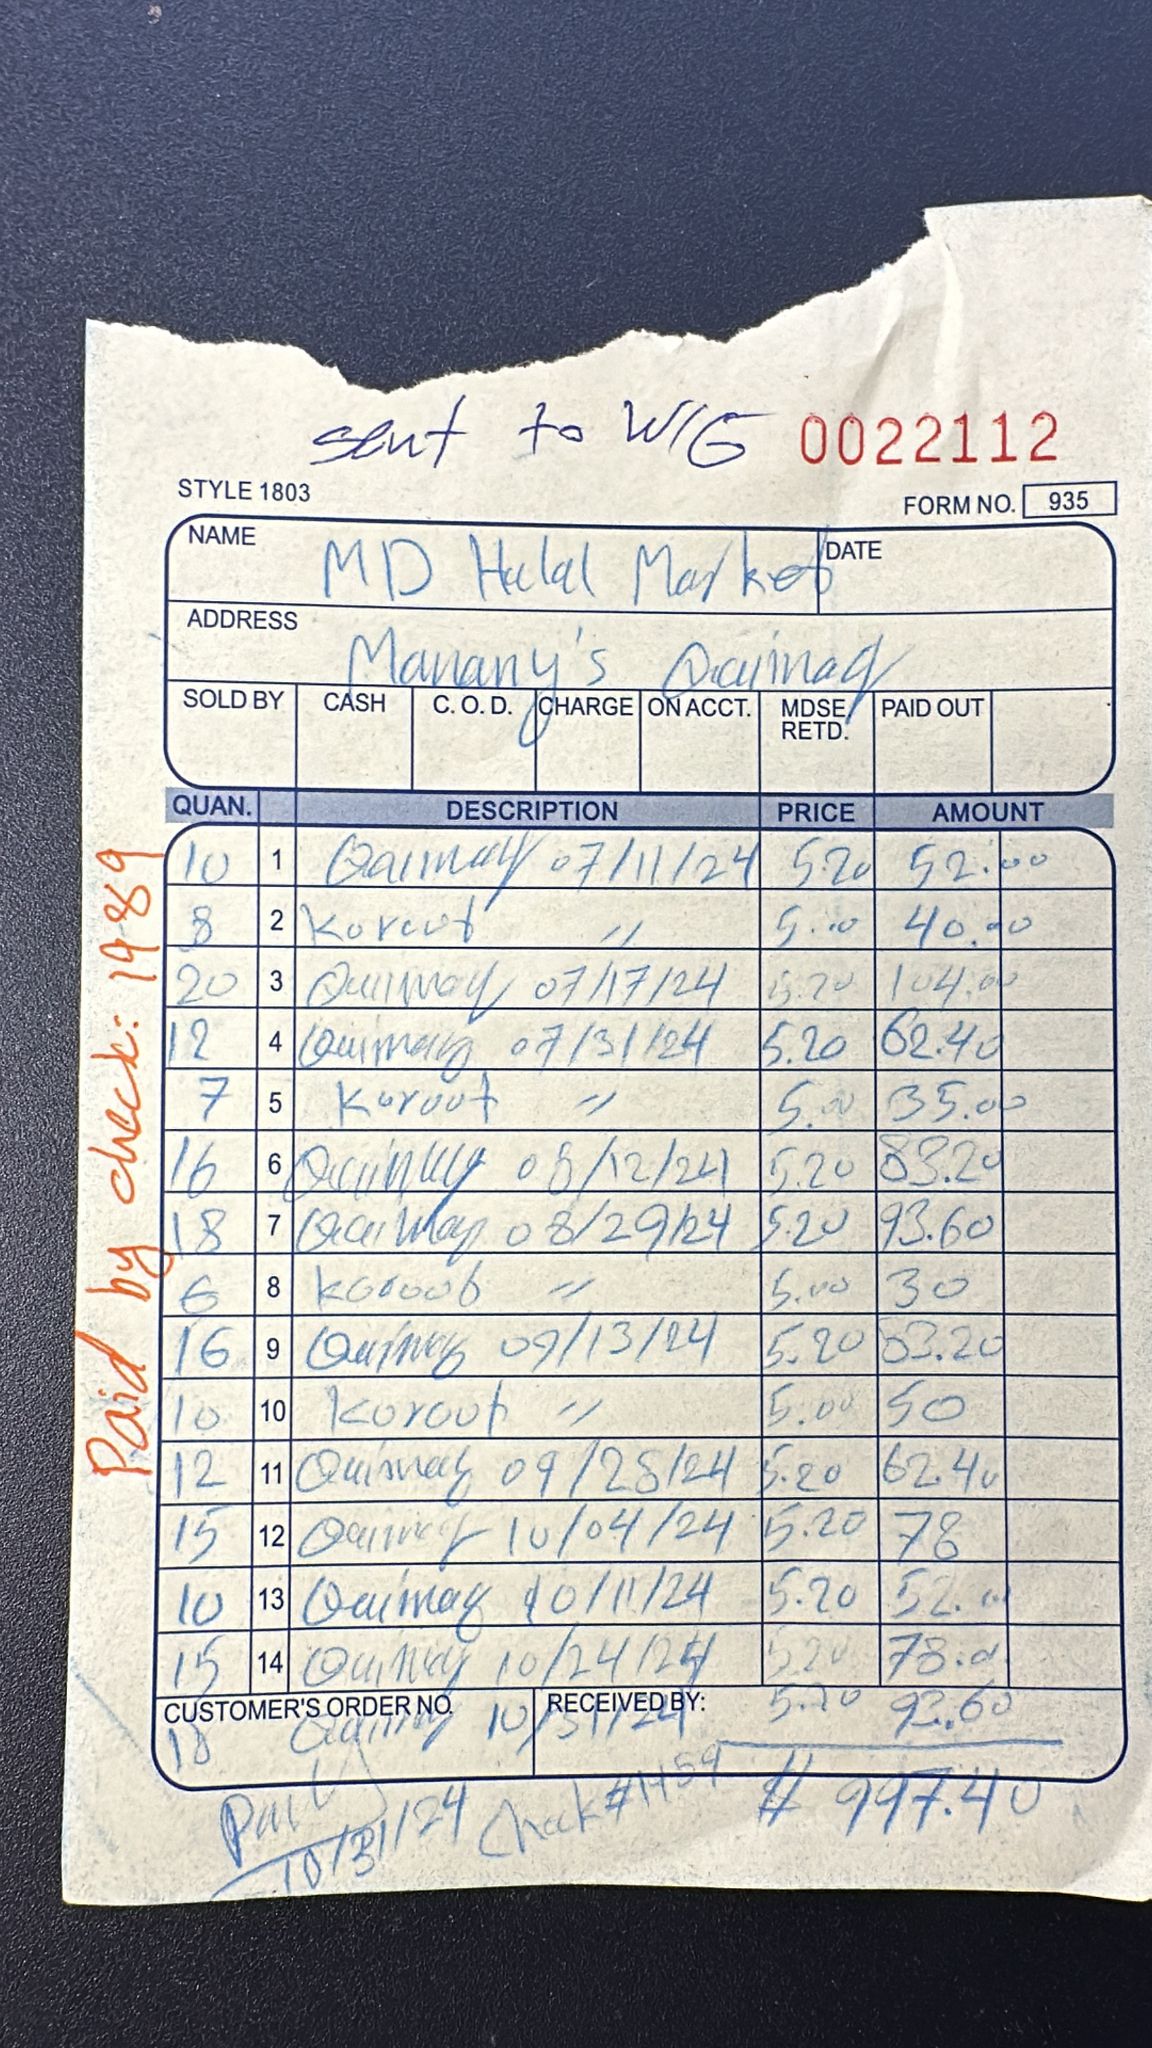 sent to W/G 0022112
STYLE 1803
FORM NO. 935
NAME MD Halal Market DATE
ADDRESS Manany's Qaimaq
SOLD BY CASH C. O. D. CHARGE ON ACCT. MDSE RETD. PAID OUT
QUAN. DESCRIPTION PRICE AMOUNT
10 1 Qaimaq 07/11/24 5.20 52.00
8 2 Koroot " 5.00 40.00
20 3 Qaimaq 07/17/24 5.20 104.00
12 4 Qaimaq 07/31/24 5.20 62.40
7 5 Koroot " 5.00 35.00
16 6 Qaimaq 08/12/24 5.20 83.20
18 7 Qaimaq 08/29/24 5.20 93.60
6 8 Koroot " 5.00 30
16 9 Qaimaq 09/13/24 5.20 83.20
10 10 Koroot " 5.00 50
12 11 Qaimaq 09/25/24 5.20 62.40
15 12 Qaimaq 10/04/24 5.20 78
10 13 Qaimaq 10/11/24 5.20 52.00
15 14 Qaimaq 10/24/24 5.20 78.0
CUSTOMER'S ORDER NO. RECEIVED BY:
18 Qaimaq 10/31/24 5.20 93.60
Paid 10/31/24 Check # $ 997.40
Paid by check: 1989